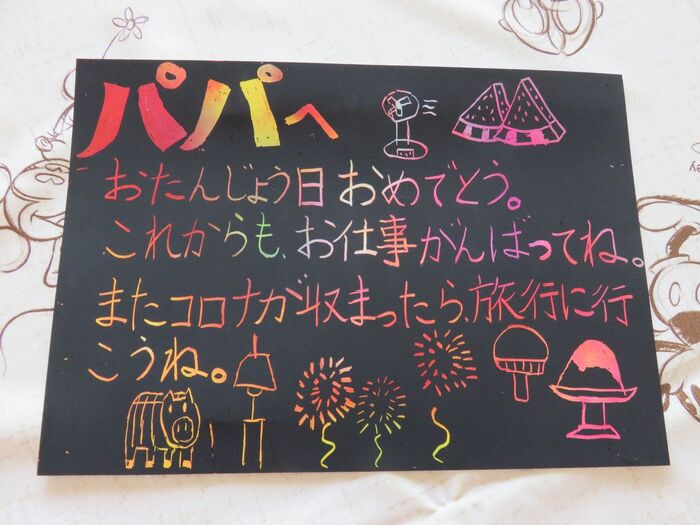 パパへ
おたんじょう日おめでとう。
これからも、お仕事がんばってね。
またコロナが収まったら、旅行に行
こうね。